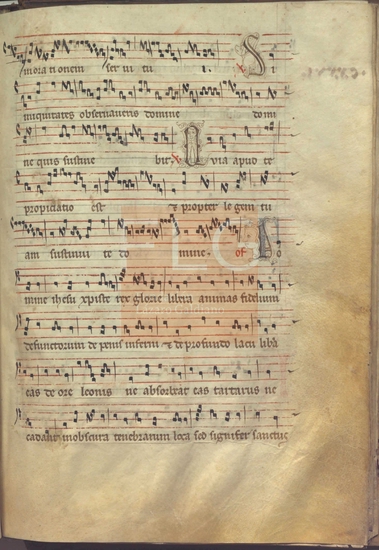 moracionem servi tu i. S i
iniquitates observaveris domine domi
ne quis sustine bit. Q uia apud te
propiciatio est & propter legem tu
am sustinui te do mine. of
mine ihesu xpiste rex glorie libera animas fidelium
defunctorum de penis inferni & de profundo lacu libera
eas de ore leonis ne absorbeat eas tartarus ne
cadant in obscura tenebrarum loca sed signifer sanctus